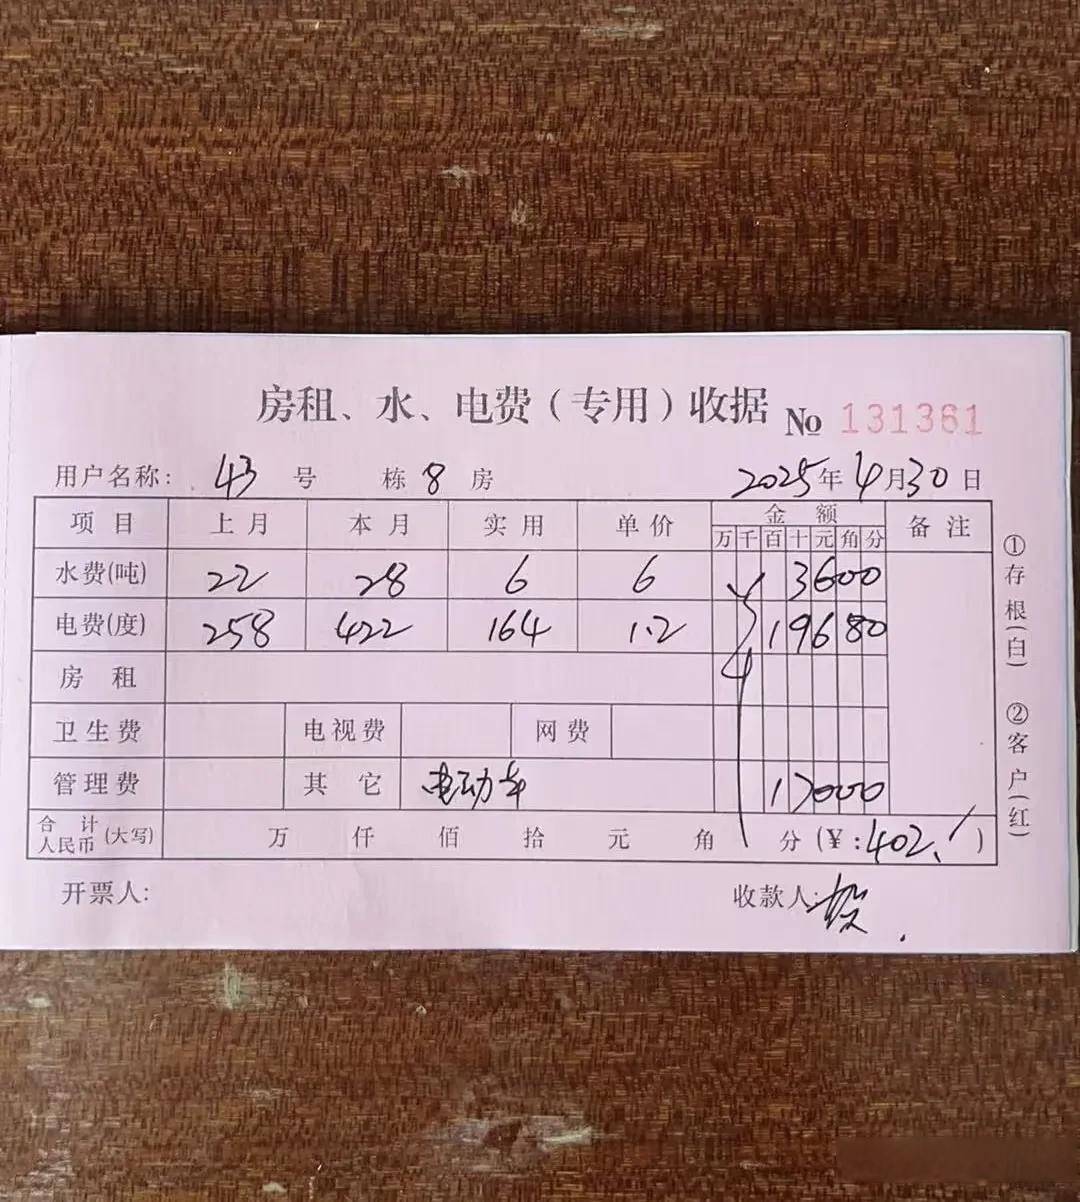 房租、水、电费（专用）收据 № 131361
用户名称： 43 号 栋 8 房 2025年 4月30日
项目 上月 本月 实用 单价 金额 备注
万 千 百 十 元 角 分
水费(吨) 22 28 6 6 3600
电费(度) 258 422 164 1.2 19680
房租
卫生费 电视费 网费
管理费 其它 电动车 17000
合计人民币 (大写) 万 仟 佰 拾 元 角 分 (¥:402. )
开票人: 收款人:
①存根(白) ②客户(红)